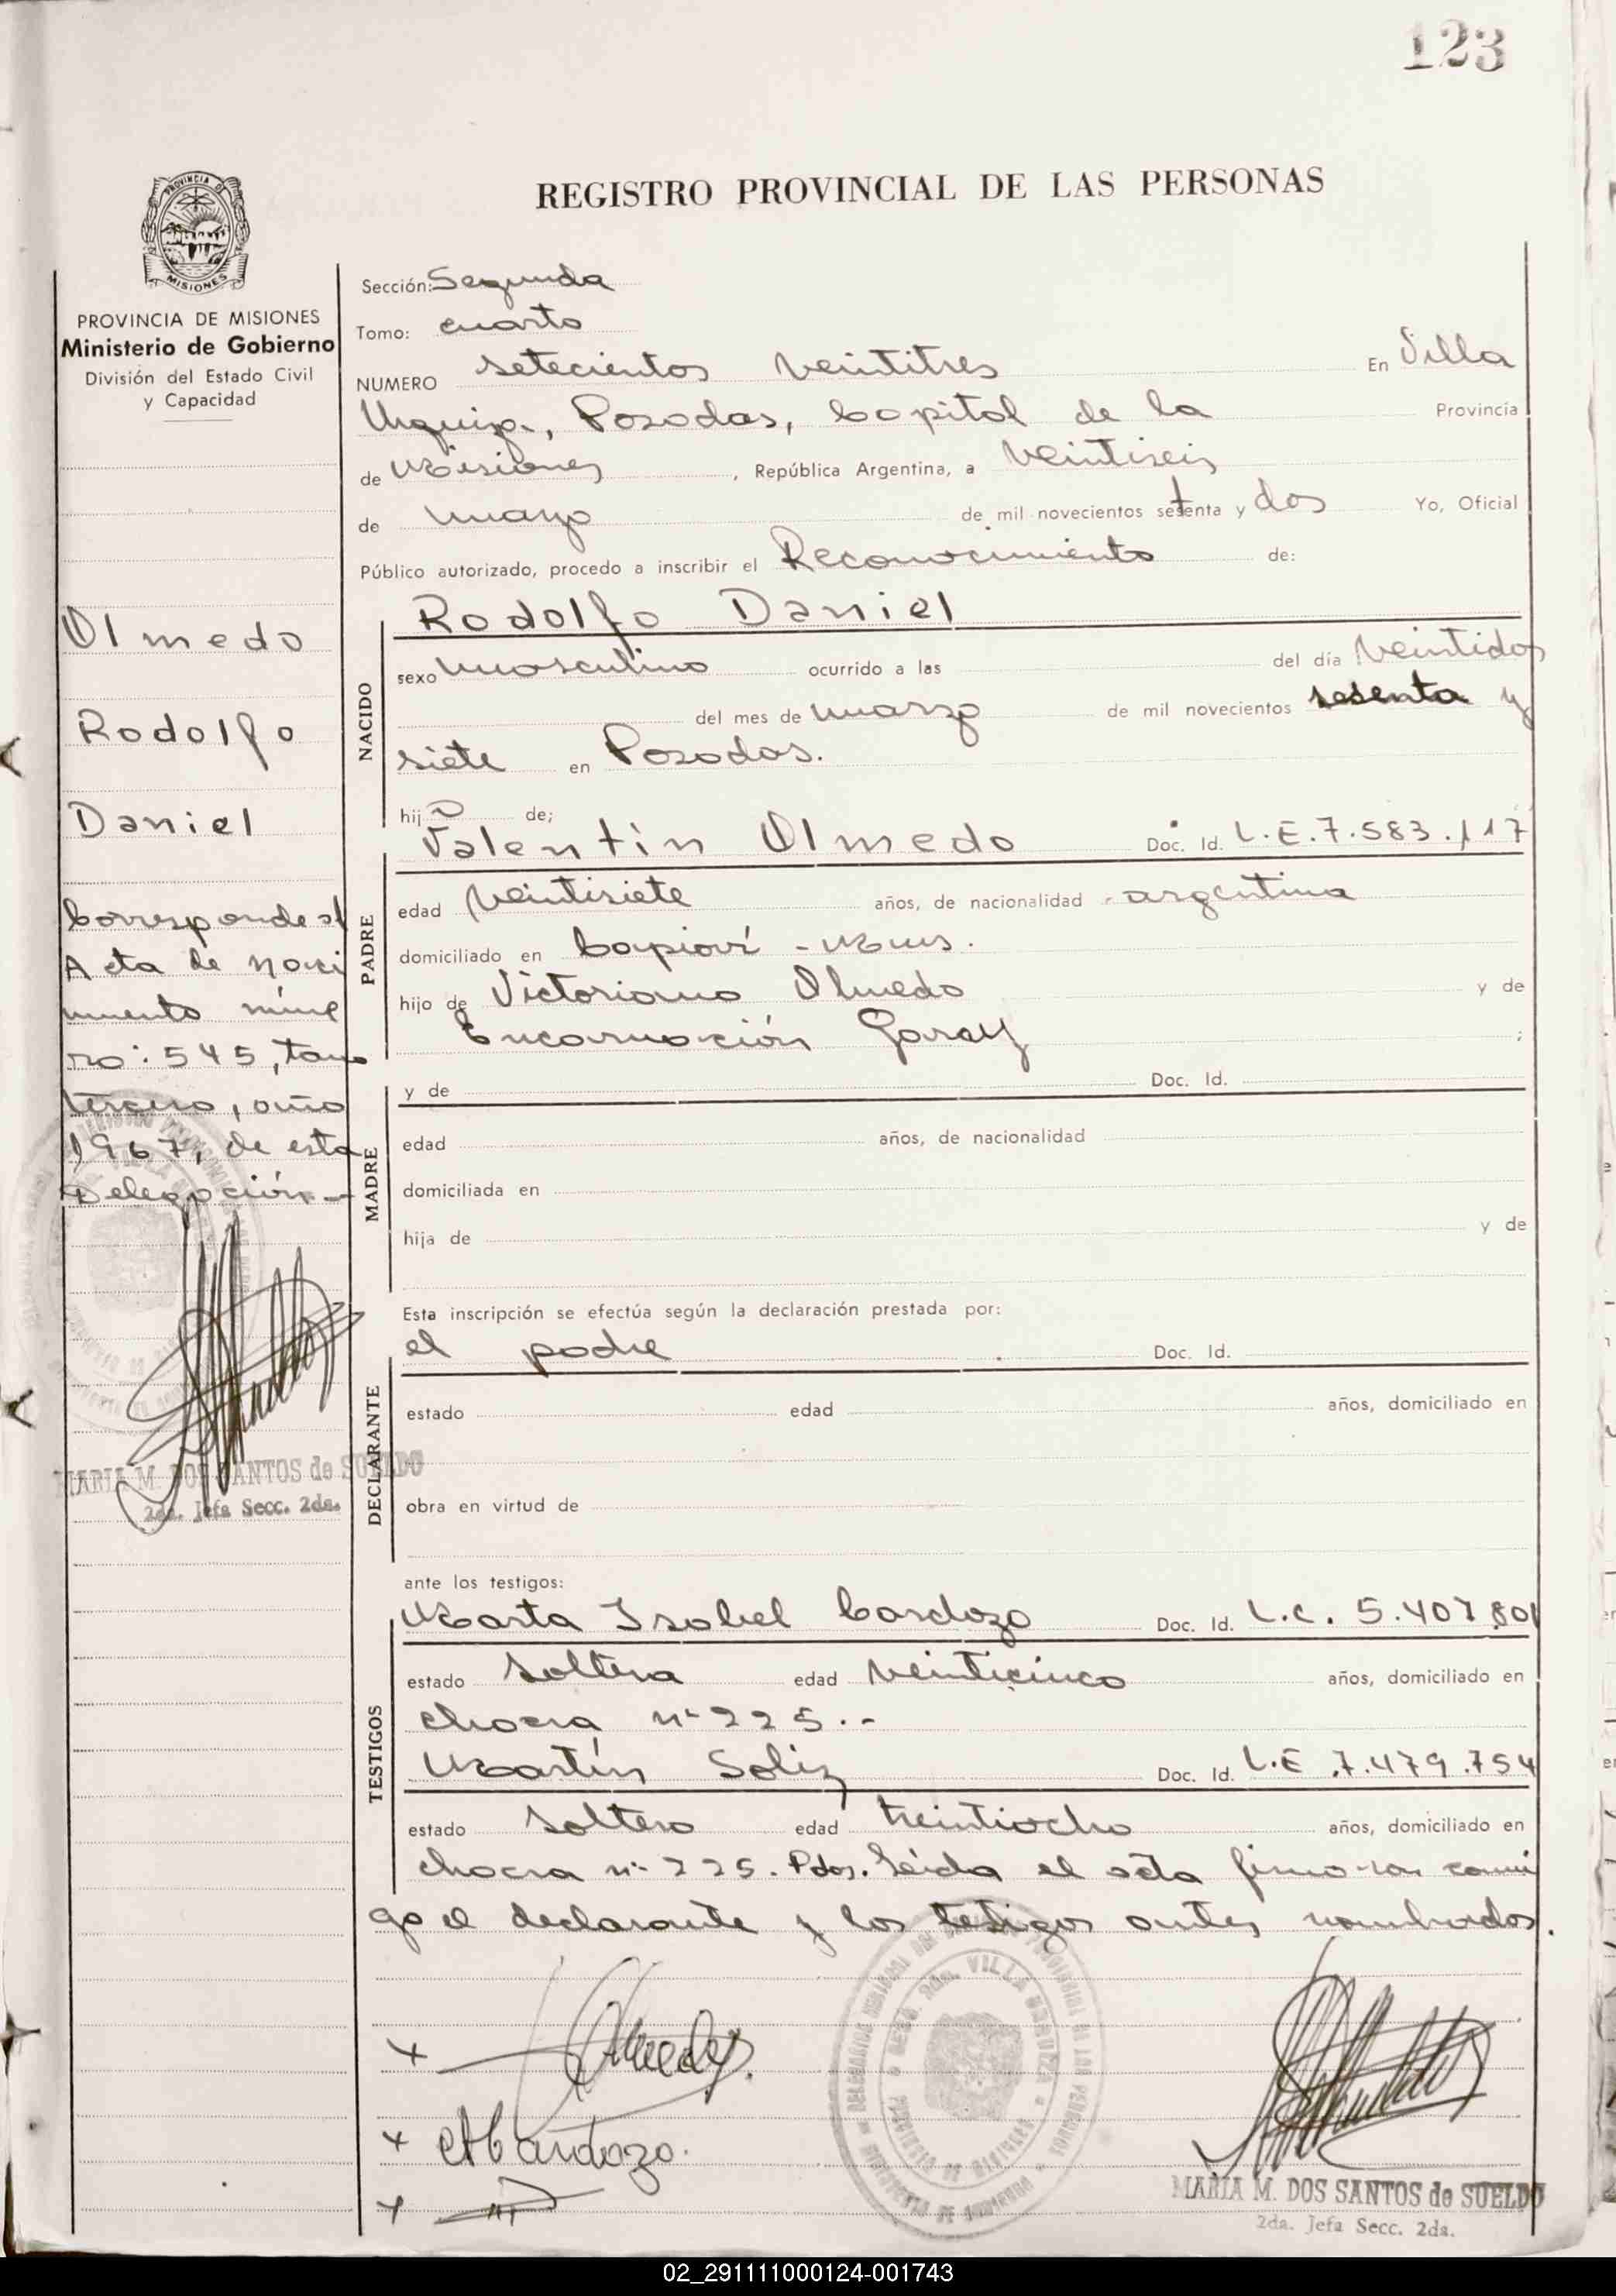 123
REGISTRO PROVINCIAL DE LAS PERSONAS
PROVINCIA DE MISIONES
Ministerio de Gobierno
División del Estado Civil
y Capacidad
Olmedo
Rodolfo
Daniel
Corresponde al
Acta de naci
miento núme
ro: 545, tomo
tercero, año
1967, de esta
Delegación.-
MARIA M. DOS SANTOS de SUELDO
2da. Jefa Secc. 2da.
Sección: Segunda
Tomo: cuarto
NUMERO setecientos veintitres En Villa
Urquiza, Posadas, Capital de la Provincia
de Misiones, República Argentina, a veintiseis
de marzo de mil novecientos setenta y dos Yo, Oficial
Público autorizado, procedo a inscribir el Reconocimiento de:
NACIDO
Rodolfo Daniel
sexo masculino ocurrido a las del día veintidos
del mes de marzo de mil novecientos sesenta y
siete en Posadas.
hijo de;
PADRE
Valentín Olmedo Doc. Id. L.E. 7.583.117
edad veintisiete años, de nacionalidad argentina
domiciliado en Capioví - Mnes.
hijo de Victoriano Olmedo y de
Encarnación Garay ;
MADRE
y de Doc. Id.
edad años, de nacionalidad
domiciliada en
hija de y de
Esta inscripción se efectúa según la declaración prestada por:
DECLARANTE
el padre Doc. Id.
estado edad años, domiciliado en
obra en virtud de
ante los testigos:
TESTIGOS
Marta Isabel Cardozo Doc. Id. L.C. 5.407.801
estado soltera edad veinticinco años, domiciliado en
chacra nº 225.-
Martín Soliz Doc. Id. L.E 7.479.754
estado soltero edad treintiocho años, domiciliado en
chacra nº 225. Pdas. Leída el acta firmaron conmi
go el declarante y los testigos antes nombrados.
Olmedo
MCardozo.
MARIA M. DOS SANTOS de SUELDO
2da. Jefa Secc. 2da.
02_291111000124-001743